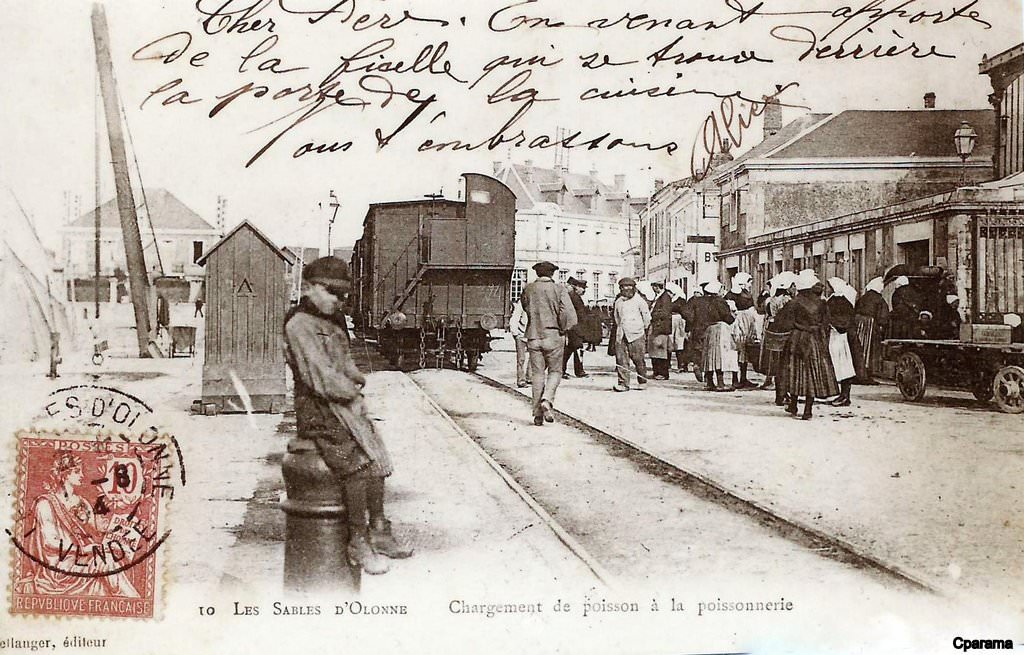 Cher Père. En venant apporte
de la ficelle qui se trouve derrière
la porte de la cuisine
ous t'embrassons Alice
B
LES D'OLONNE
8
4
VENDÉE
POSTES
10
REPVBLIQVE FRANÇAISE
10 LES SABLES D'OLONNE Chargement de poisson à la poissonnerie
ellanger, éditeur
Cparama